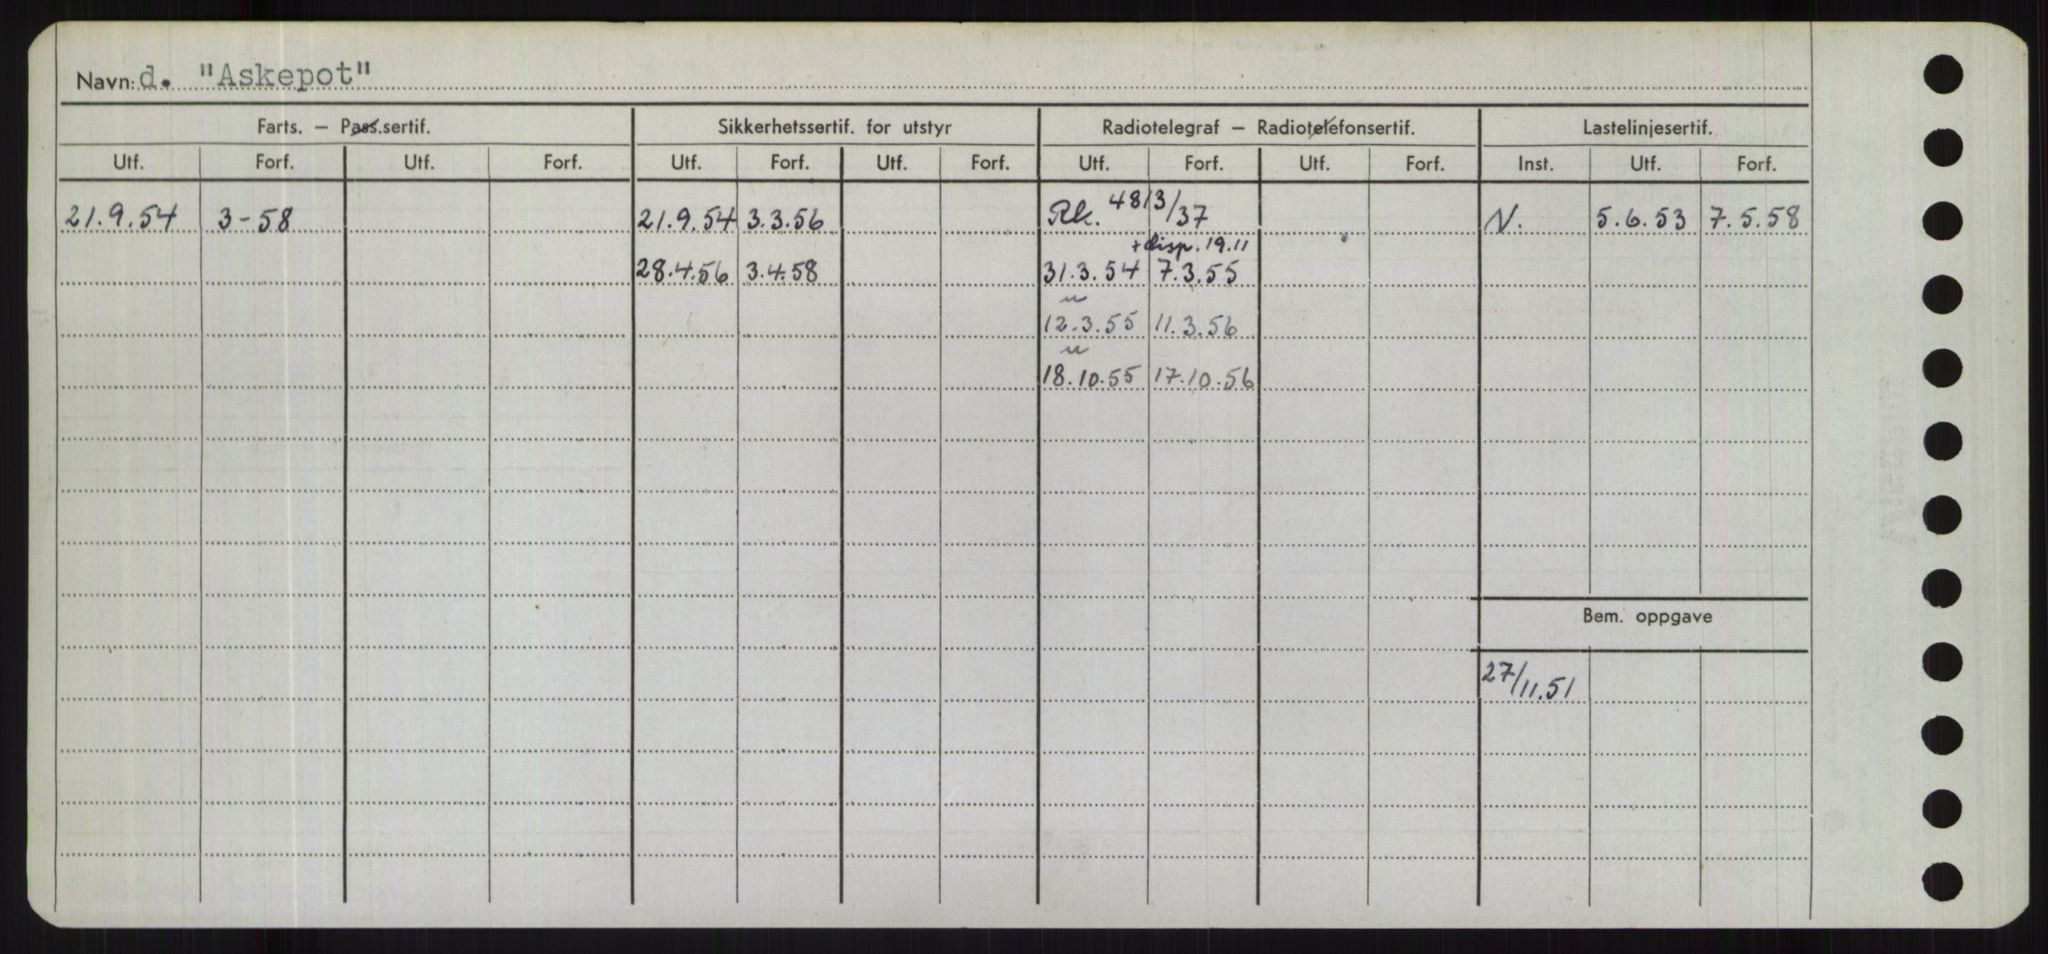 Navn: d. "Askepot"
Farts. – Pass.sertif. Sikkerhetssertif. for utstyr Radiotelegraf – Radiotelefonsertif. Lastelinjesertif.
Utf. Forf. Utf. Forf. Utf. Forf. Utf. Forf. Utf. Forf. Utf. Forf. Inst. Utf. Forf.
21.9.54 3-58 21.9.54 3.3.56 Rk. 4813/37 N. 5.6.53 7.5.58
+ disp. 19.11
28.4.56 3.4.58 31.3.54 7.3.55
"
12.3.55 11.3.56
"
18.10.55 17.10.56
Bem. oppgave
27/11.51